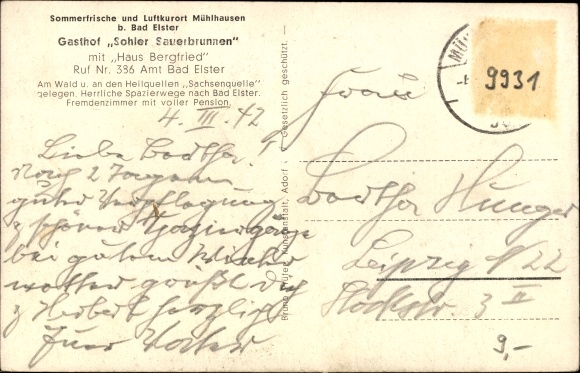 Sommerfrische und Luftkurort Mühlhausen
b. Bad Elster
Gasthof „Sohler Sauerbrunnen"
mit „Haus Bergfried"
Ruf Nr. 386 Amt Bad Elster
Am Wald u. an den Heilquellen „Sachsenquelle"
gelegen. Herrliche Spazierwege nach Bad Elster.
Fremdenzimmer mit voller Pension.
4. III. 42
Liebe Dorthe!
Nach 2 Tagen
guter Verpflegung
& schöner Spaziergänge
bei gutem Winter
wetter grüßt Dich
& Herbert herzlich
Euer Vater
Gesetzlich geschützt.
Kunstanstalt, Adorf i.
MÜ
9931
Frau
Dorthe Hunger
Leipzig N 22
3 II
9,-